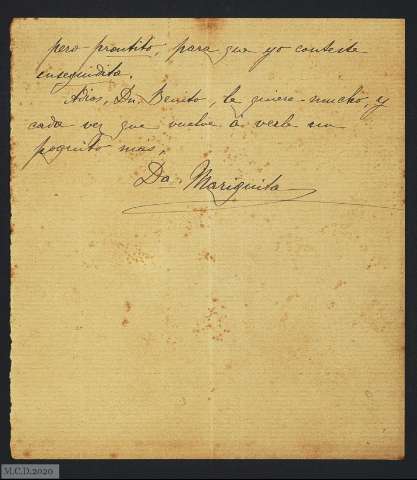 pero prontito, para que yo conteste
enseguidita.
Adios, Dn. Benito, le quiero mucho, y
cada vez que vuelve á verle un
poquito más,
Da. Mariquita
M.C.D.2020